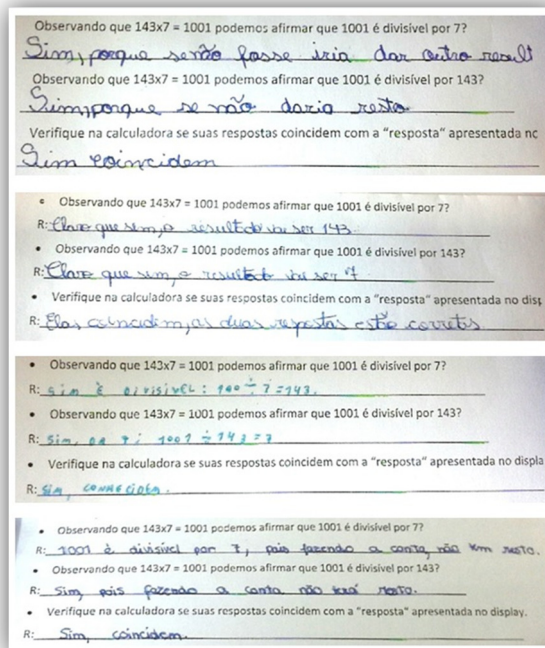 Observando que 143x7 = 1001 podemos afirmar que 1001 é divisível por 7?
Sim, porque se não fosse iria dar outro result
Observando que 143x7 = 1001 podemos afirmar que 1001 é divisível por 143?
Sim, porque se não daria resto
Verifique na calculadora se suas respostas coincidem com a "resposta" apresentada no
Sim coincidem
• Observando que 143x7 = 1001 podemos afirmar que 1001 é divisível por 7?
R: Claro que sim, o resultado vai ser 143
• Observando que 143x7 = 1001 podemos afirmar que 1001 é divisível por 143?
R: Claro que sim, o resultado vai ser 7
• Verifique na calculadora se suas respostas coincidem com a "resposta" apresentada no disp
R: Elas coincidem, as duas respostas estão corretas
• Observando que 143x7 = 1001 podemos afirmar que 1001 é divisível por 7?
R: Sim é divisivel: 100 ÷ 7 = 143.
• Observando que 143x7 = 1001 podemos afirmar que 1001 é divisível por 143?
R: Sim, 1001 ÷ 143 = 7
• Verifique na calculadora se suas respostas coincidem com a "resposta" apresentada no displa
R: Sim,
• Observando que 143x7 = 1001 podemos afirmar que 1001 é divisível por 7?
R: 1001 é divisível por 7, pois fazendo a conta, não tem resto.
• Observando que 143x7 = 1001 podemos afirmar que 1001 é divisível por 143?
R: Sim, pois fazendo a conta não terá resto.
• Verifique na calculadora se suas respostas coincidem com a "resposta" apresentada no display.
R: Sim, coincidem.